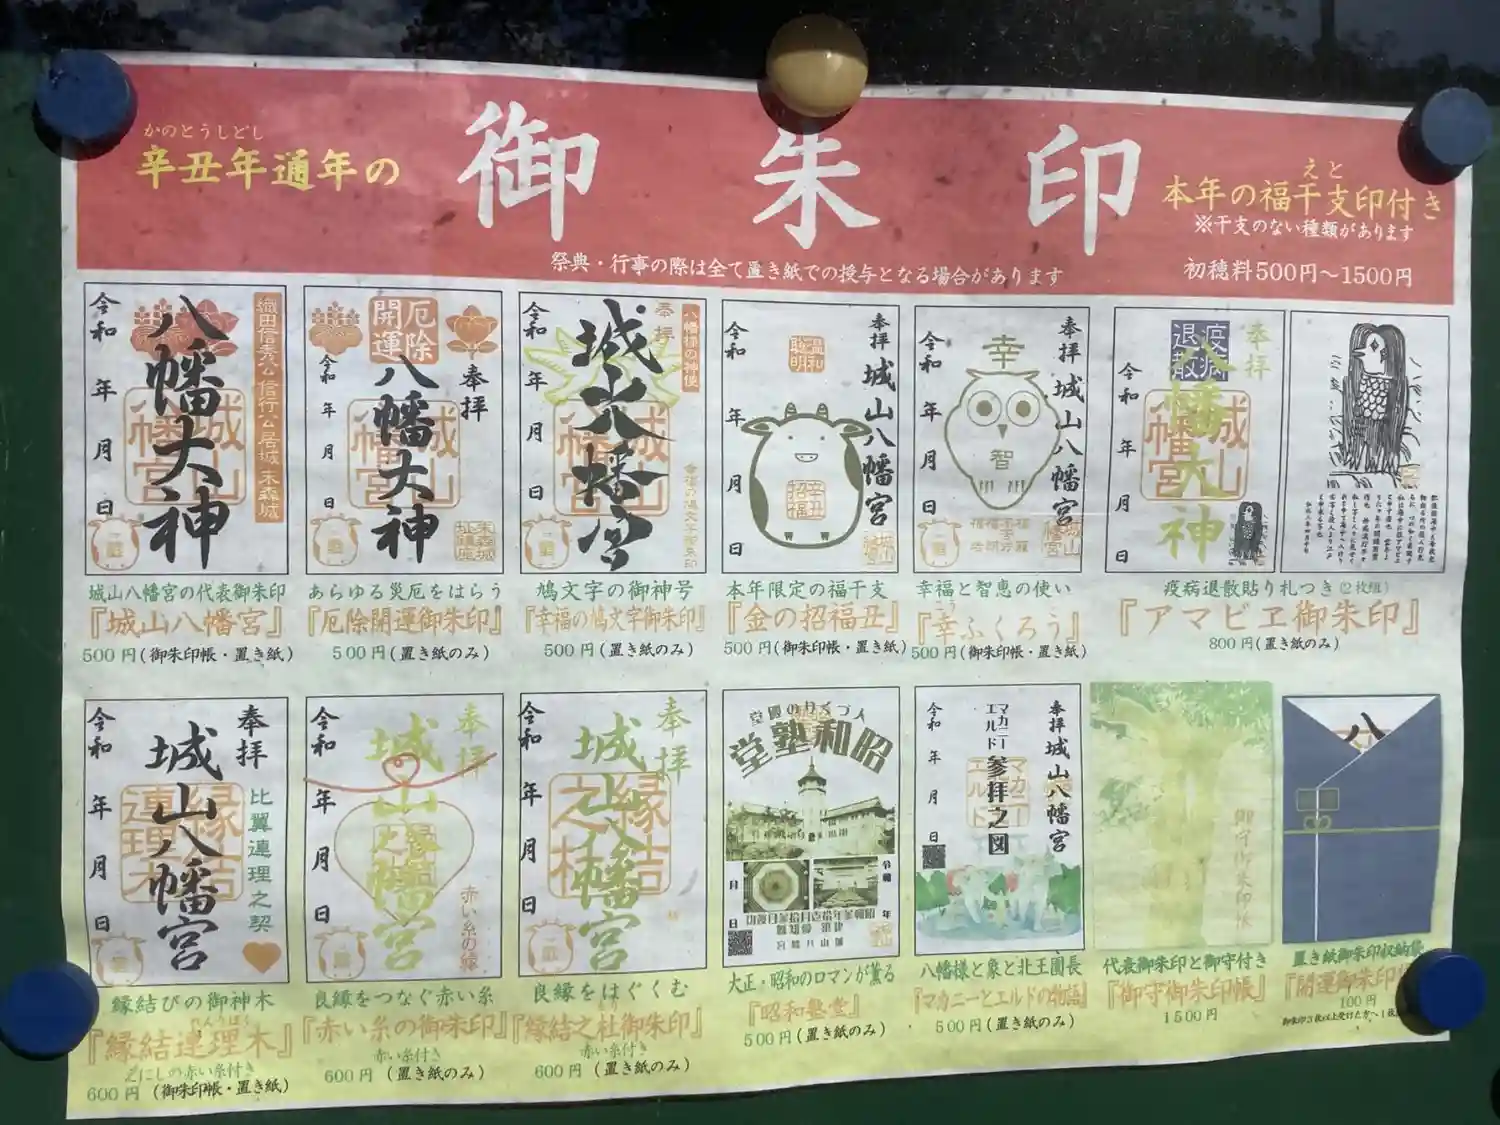 かのとうしどし
辛丑年通年の
御朱印
えと
本年の福干支印付き
※干支のない種類があります
祭典・行事の際は全て置き紙での授与となる場合があります
初穂料500円～1500円
令和 年 月 日
八幡大神
織田信秀公 信行公 居城 末森城
城山八幡宮
城山八幡宮の代表御朱印
『城山八幡宮』
500円(御朱印帳・置き紙)
厄除開運
奉拝
八幡大神
令和 年 月 日
城山八幡宮
あらゆる災厄をはらう
『厄除開運御朱印』
500円(置き紙のみ)
奉拝
八幡様の神使
城山八幡宮
令和 年 月 日
鳩文字の御神号
『幸福の鳩文字御朱印』
500円(置き紙のみ)
奉拝 城山八幡宮
令和 年 月 日
温和聡明
辛丑招福
本年限定の福干支
『金の招福丑』
500円(御朱印帳・置き紙)
奉拝 城山八幡宮
幸
智
令和 年 月 日
幸福と智恵の使い
こう
『幸ふくろう』
500円(御朱印帳・置き紙)
奉拝
疫病退散
八幡大神
城山八幡宮
令和 年 月 日
疫病退散貼り札つき(2枚組)
『アマビヱ御朱印』
800円(置き紙のみ)
奉拝
城山八幡宮
縁結連理木
比翼連理之契
令和 年 月 日
縁結びの御神木
れんりぼく
『縁結連理木』
えにしの赤い糸付き
600円(御朱印帳・置き紙)
奉拝
城山八幡宮
赤い糸の縁
令和 年 月 日
良縁をつなぐ赤い糸
『赤い糸の御朱印』
赤い糸付き
600円(置き紙のみ)
奉拝
城山八幡宮
縁結之杜
令和 年 月 日
良縁をはぐくむ
『縁結之杜御朱印』
赤い糸付き
600円(置き紙のみ)
人づくりの殿堂
昭和塾堂
大正・昭和のロマンが薫る
『昭和塾堂』
500円(置き紙のみ)
奉拝 城山八幡宮
マカニー
エルド
参拝之図
令和 年 月 日
八幡様と象と北王園長
『マカニーとエルドの物語』
500円(置き紙のみ)
御守御朱印帳
代表御朱印と御守付き
『御守御朱印帳』
1500円
八
置き紙御朱印収納袋
『開運御朱印
100円